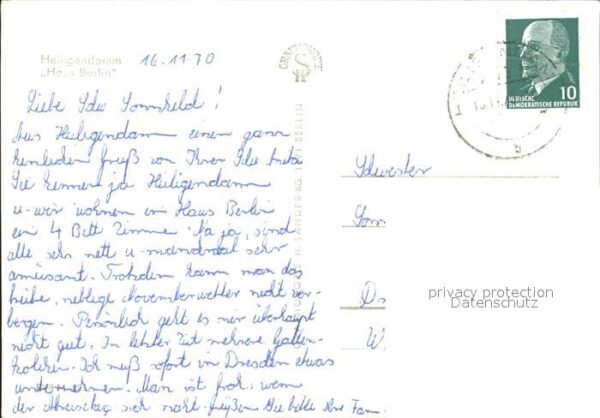 Heiligendamm
„Haus Berlin"
16.11.70
Liebe Schw. Sommfeld!
Aus Heiligendamm einen ganz
herzlichen Gruß von Ihrer
Sie kennen ja Heiligendamm
u. wir wohnen im Haus Berlin
ein 4 Bett Zimmer. Na ja, sind
alle sehr nett u. manchmal sehr
amüsant. Trotzdem kann man das
trübe, neblige Novemberwetter nicht ver-
bergen. Persönlich geht es mir überhaupt
nicht gut. In letzter Zeit mehrere Gallen-
koliken. Ich muß sofort in Dresden etwas
unternehmen. Man ist froh, wenn
der Abreisetag sich naht. Grüßen Sie bitte Ihre Fam.
BERLIN
DEUTSCHE
DEMOKRATISCHE REPUBLIK
10
b
Schwester
Som
D
W
privacy protection
Datenschutz